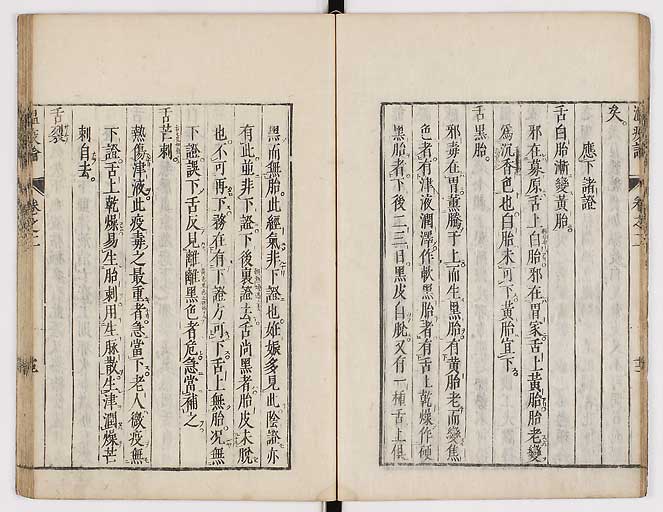 矣。
應下諸證
舌白胎漸變黃胎。
邪在募原。舌上白胎。邪在胃家。舌上黃胎。胎老變
爲沉香色也。白胎未可下。黃胎宜下。
舌黑胎。
邪毒在胃。薰騰于上。而生黑胎。有黃胎老而變焦
色者。有津液潤澤作軟黑胎者。有舌上乾燥作硬
黑胎者。下後二三日。黑皮自脫。又有一種舌上俱
黑而無胎。此經氣非下證也。妊娠多見此。陰證亦
有此。並非下證。下後裏證去。舌尚黑者。胎皮未脫
也。不可再下。務在有下證方可下。舌上無胎。况無
下證。誤下舌反見離離黑色者危。急當補之
舌芒刺。
熱傷津液。此疫毒之最重者。急當下。老人微疫無
下證。舌上乾燥易生胎刺。用生脉散。生津潤燥。芒
刺自去。
舌裂
溫疫論 卷之二